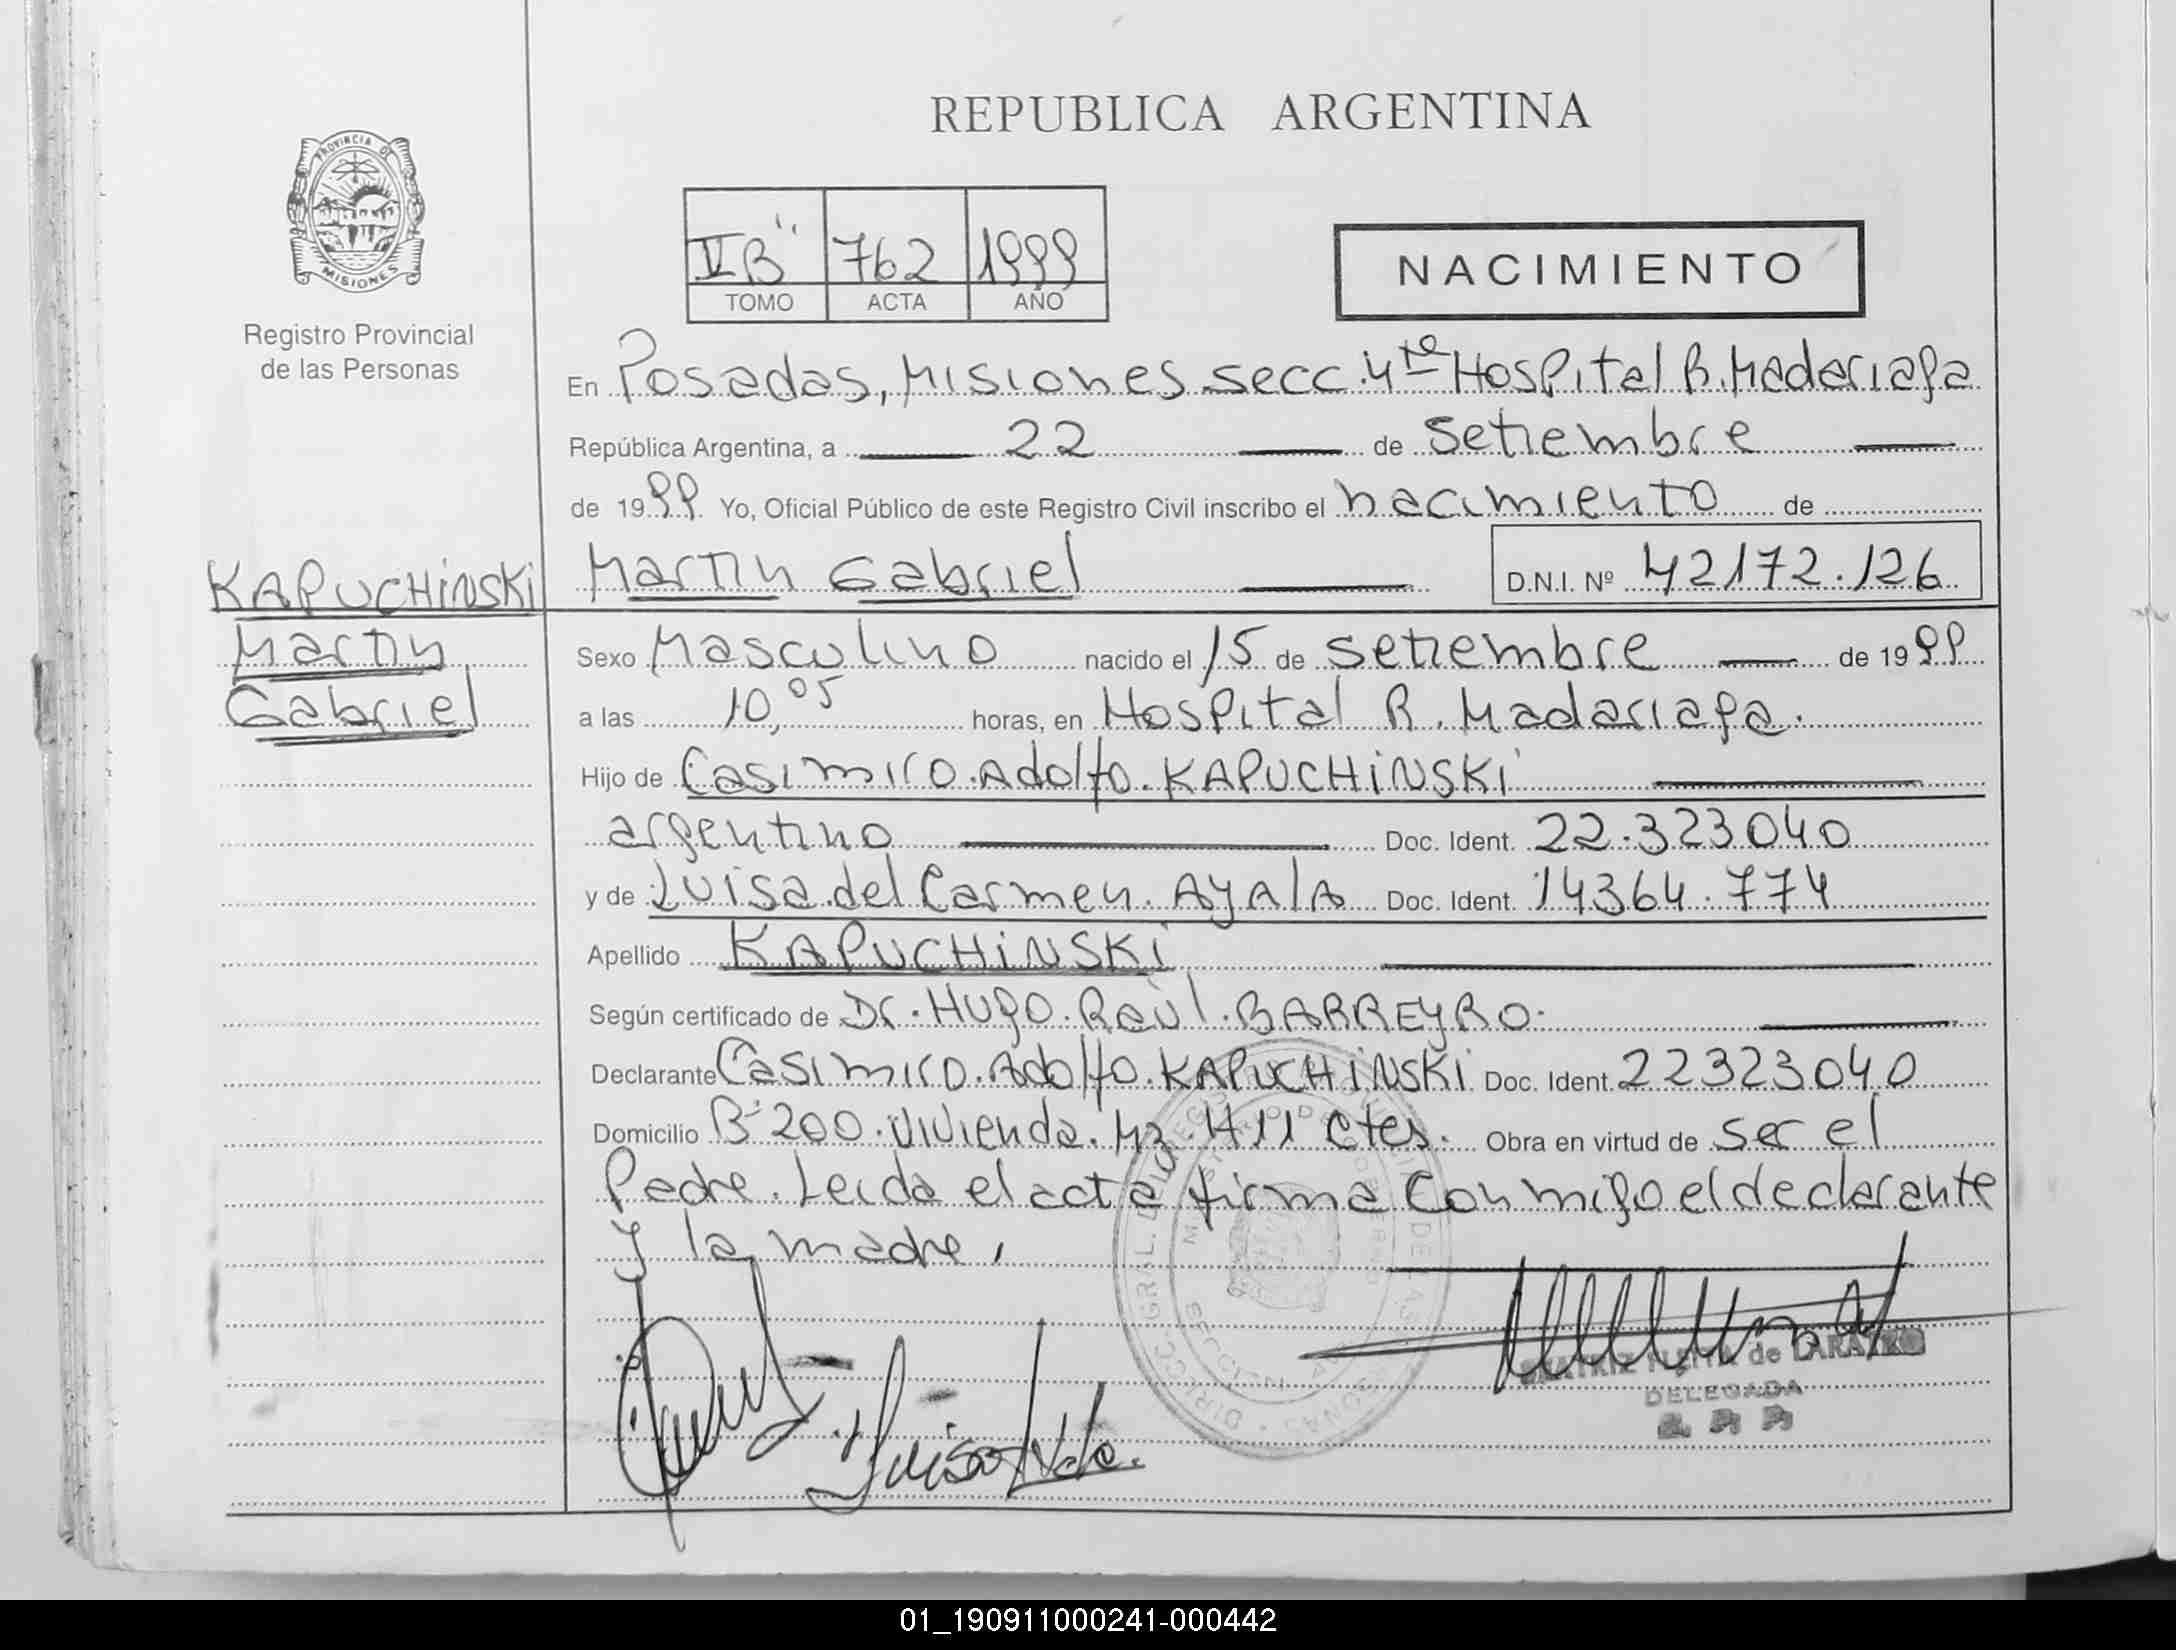 REPUBLICA ARGENTINA
PROVINCIA DE
MISIONES
Registro Provincial
de las Personas
VB" 762 1999
TOMO ACTA AÑO
NACIMIENTO
En Posadas, Misiones secc. 4ta Hospital R. Madariaga
República Argentina, a 22 de Setiembre
de 1999 Yo, Oficial Público de este Registro Civil inscribo el nacimiento de
KAPUCHINSKI
Martin
Gabriel
Martin Gabriel D.N.I. Nº 42172.126
Sexo Masculino nacido el 15 de setiembre de 1999
a las 10,05 horas, en Hospital R. Madariaga.
Hijo de Casimiro Adolfo KAPUCHINSKI
argentino Doc. Ident. 22.323040
y de Luisa del Carmen AYALA Doc. Ident. 14364.774
Apellido KAPUCHINSKI
Según certificado de Dr. Hugo Raùl BARREYRO.
Declarante Casimiro Adolfo KAPUCHINSKI Doc. Ident. 22323040
Domicilio Bº 200 Vivienda Mz H 11 Ctes. Obra en virtud de ser el
Padre. Leida el acta firma Conmigo el declarante
y la madre,
de
DELEGADA
01_190911000241-000442